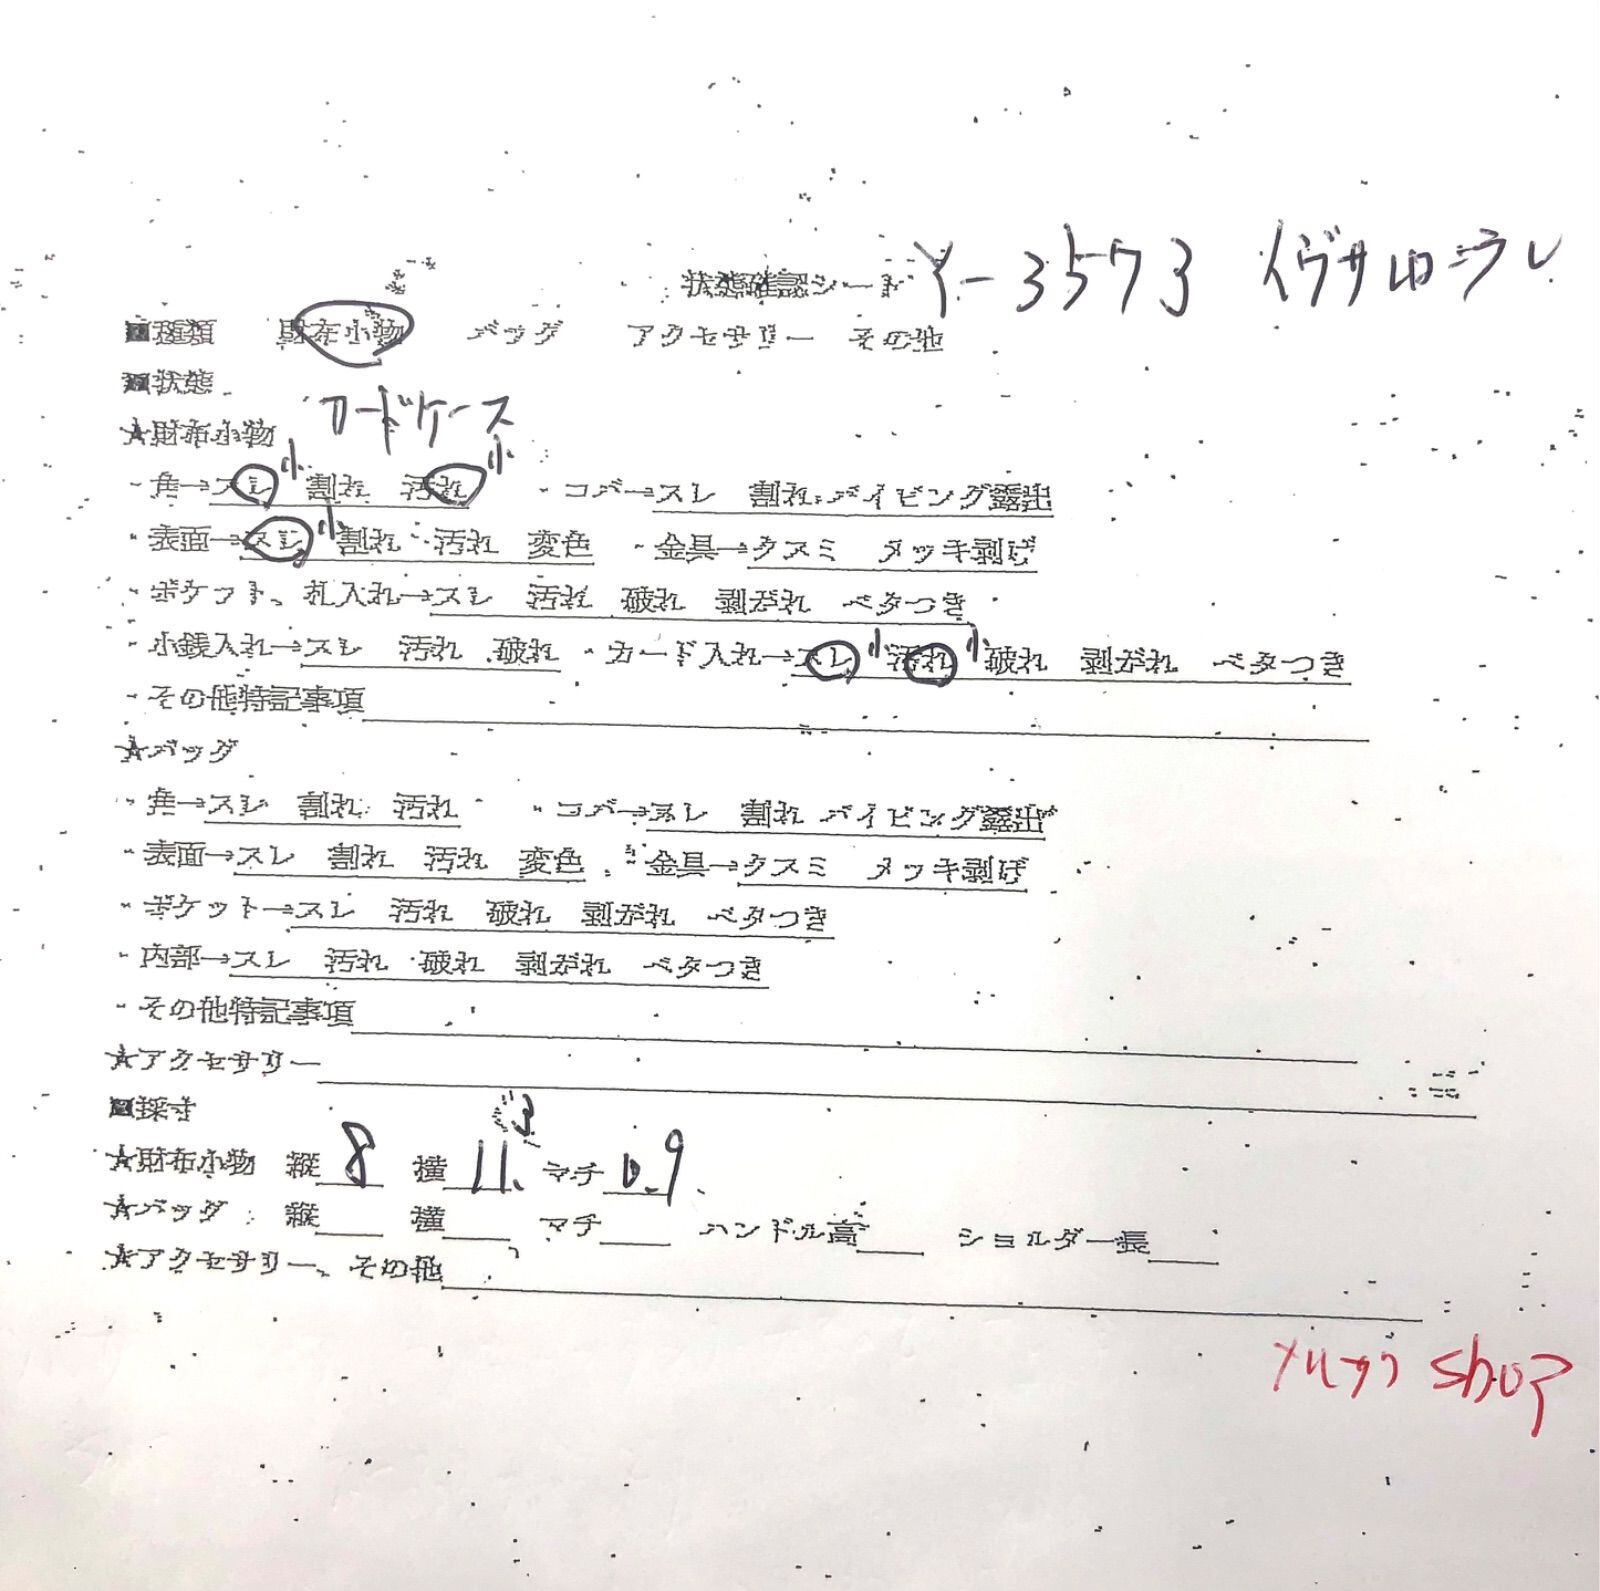 状態確認シート Y-3573 イヴサンローラン
■種類 財布小物 バッグ アクセサリー その他
■状態
カードケース
★財布小物
・角→スレ小 割れ 汚れ小 ・コバ→スレ 割れ パイピング露出
・表面→スレ小 割れ 汚れ 変色 ・金具→クスミ メッキ剥げ
・ポケット、札入れ→スレ 汚れ 破れ 剥がれ ベタつき
・小銭入れ→スレ 汚れ 破れ ・カード入れ→スレ小 汚れ小 破れ 剥がれ ベタつき
・その他特記事項
★バッグ
・角→スレ 割れ 汚れ ・コバ→スレ 割れ パイピング露出
・表面→スレ 割れ 汚れ 変色 ・金具→クスミ メッキ剥げ
・ポケット→スレ 汚れ 破れ 剥がれ ベタつき
・内部→スレ 汚れ 破れ 剥がれ ベタつき
・その他特記事項
★アクセサリー
■採寸
★財布小物 縦 8 横 11.3 マチ 0.9
★バッグ 縦 横 マチ ハンドル高 ショルダー長
★アクセサリー、その他
shop